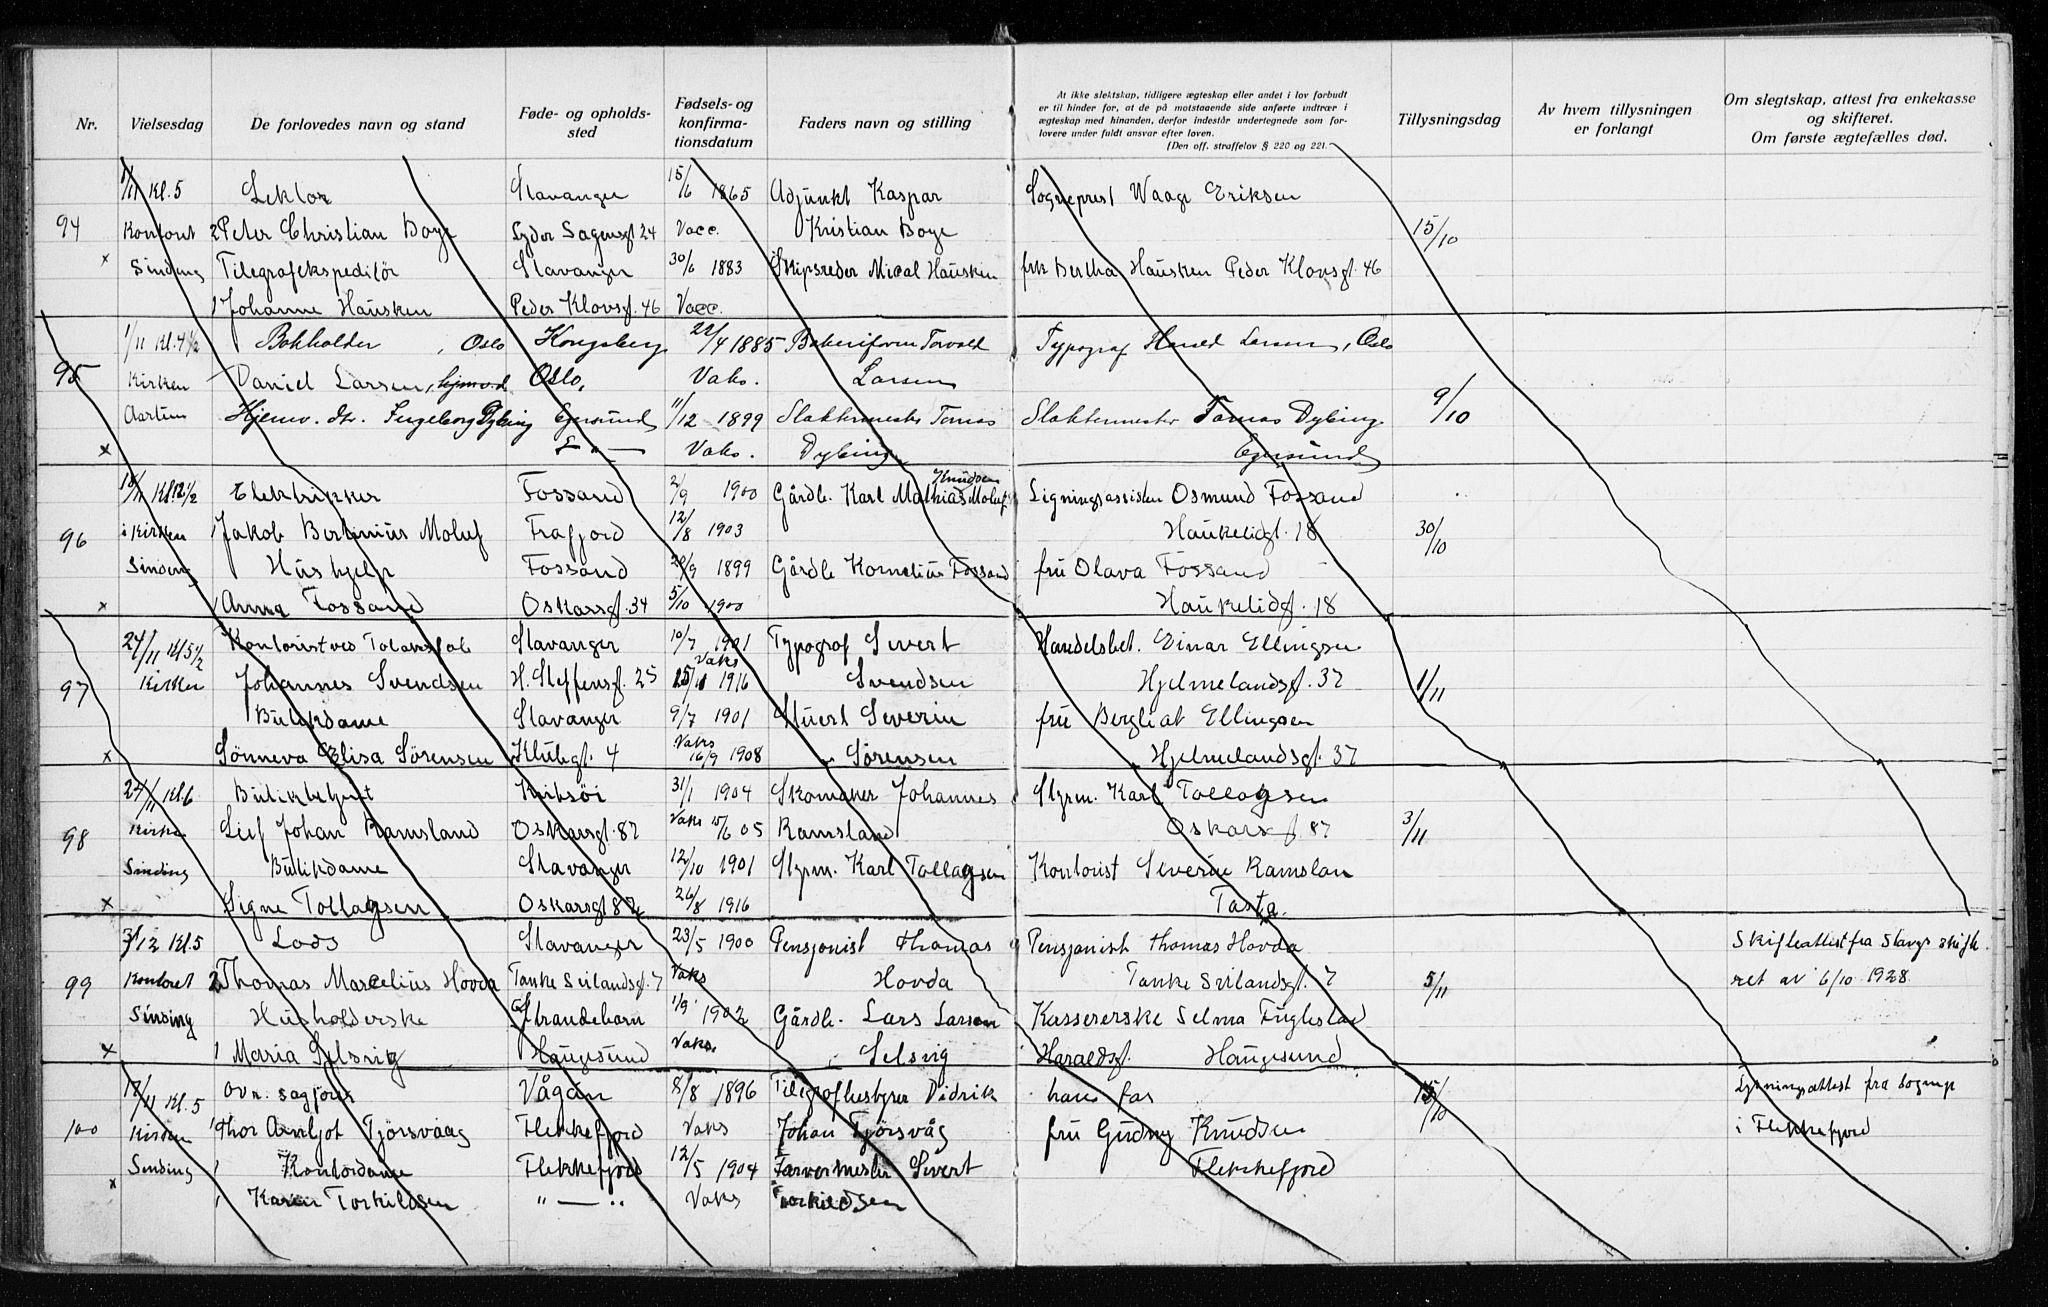 Nr. Vielsesdag De forlovedes navn og stand Føde- og opholds-sted Fødsels- og konfirma-tionsdatum Faders navn og stilling
At ikke slektskap, tidligere ægteskap eller andet i lov forbudt
er til hinder for, at de på motstaaende side anførte indtrær i
ægteskap med hinanden, derfor indestår undertegnede som for-
lovere under fuldt ansvar efter loven.
(Den off. straffelov § 220 og 221.
Tillysningsdag Av hvem tillysningen er forlangt Om slegtskap, attest fra enkekasse og skifteret. Om første ægtefælles død.
1/11 Kl. 5 Lektor Stavanger 15/6 1865 Adjunkt Kaspar Sogneprest Waage Eriksen
94 Kontoret 2 Peter Christian Boye Lyder Sagensgt 24 Vacc. Kristian Boye 15/10
x Sinding Telegrafekspeditør Stavanger 30/6 1883 Skipsreder Mical Hausken frk Bertha Hausken Peder Klowsgt. 46
1 Johanne Hausken Peder Klowsgt. 46 Vacc.
1/11 Kl. 4 1/2 Bokholder, Oslo Kongsberg 22/4 1885 Torvald Typograf Harald Larsen, Oslo
95 Kirken Daniel Larsen, Oslo, Vaks. Larsen 9/10
Aartun Hjemv. dtr. Ingeborg Dybing Egersund 11/12 1899 Slaktermester Tomas Slaktermester Tomas Dybing
x — " — Vaks. Dybing Egersund
Kl 12 1/2 Elektrikker Fossand 2/9 1900 Gårdb. Karl Mathias Knudsen Moluf Ligningsassisten Osmund Fossand
96 i Kirken 1 Jakob Bertinius Moluf Frafjord 12/8 1903 Haukeligt. 18 30/10
Sinding Hushjelp Fossand 20/9 1899 Gårdb Kornelius Fossand fru Olava Fossand
x 1 Anna Fossand Oskarsgt. 34 5/10 1900 Haukelidgt. 18
24/11 Kl 5 1/2 Kontorist ved Stavanger 10/7 1901 Typograf Sivert Handelsbet. Einar Ellingsen
97 Kirken Johannes Svendsen H. Steffensgt. 25 Vaks 15/11 1916 Svendsen Hjelmelandsgt. 37 1/11
Butikdame Stavanger 9/7 1901 Stuert Severin fru Bergliot Ellingsen
x Sønneva Elisa Sørensen Klubgt. 4 Vaks 16/9 1908 Sørensen Hjelmelandsgt. 37
24/11 Kl. 6 Butikbetjent Kvitsöi 31/1 1904 Skomaker Johannes Styrm. Karl Tollagsen
98 Kirke Leif Johan Ramsland Oskarsgt. 82 Vaks 15/6 05 Ramsland Oskarsgt. 82 3/11
Sinding Butikdame Stavanger 12/10 1901 Styrm. Karl Tollagsen Kontorist Severin Ramslan
x Signe Tollagsen Oskarsgt 82 26/8 1916 Tasta.
3/12 Kl. 5 Lods Stavanger 23/5 1900 Pensjonist Thomas Pensjonist Thomas Hovda Skifteattest fra Stavgr skifte
99 Kontoret 2 Thomas Marcelius Hovda Tanke Svilandsgt. 7 Vaks Hovda Tanke Svilandsgt. 7 5/11 ret av 6/10 1928
Sinding Husholderske Strandebarn 1/9 1902 Gårdb. Lars Larsen Kassererske Selma Fuglestad
x 1 Maria Selsvig Haugesund Vaks. Selsvig Haraldsgt. Haugesund
17/11 Kl. 5 Ovr. sagfører Vågan 8/8 1896 Telegrafbestyrer Didrik hans far 15/10 Lysningsattest fra sognep
100 Kirken 1 Thor Arnljot Tjörsvaag Flekkefjord Vaks Johan Tjörsvåg fru Gudny Knudsen i Flekkefjord
x Sinding Kontordame Flekkefjord 12/5 1904 Farvermester Sivert Flekkefjord
1 Karen Torkildsen " — " Vaks Torkildsen